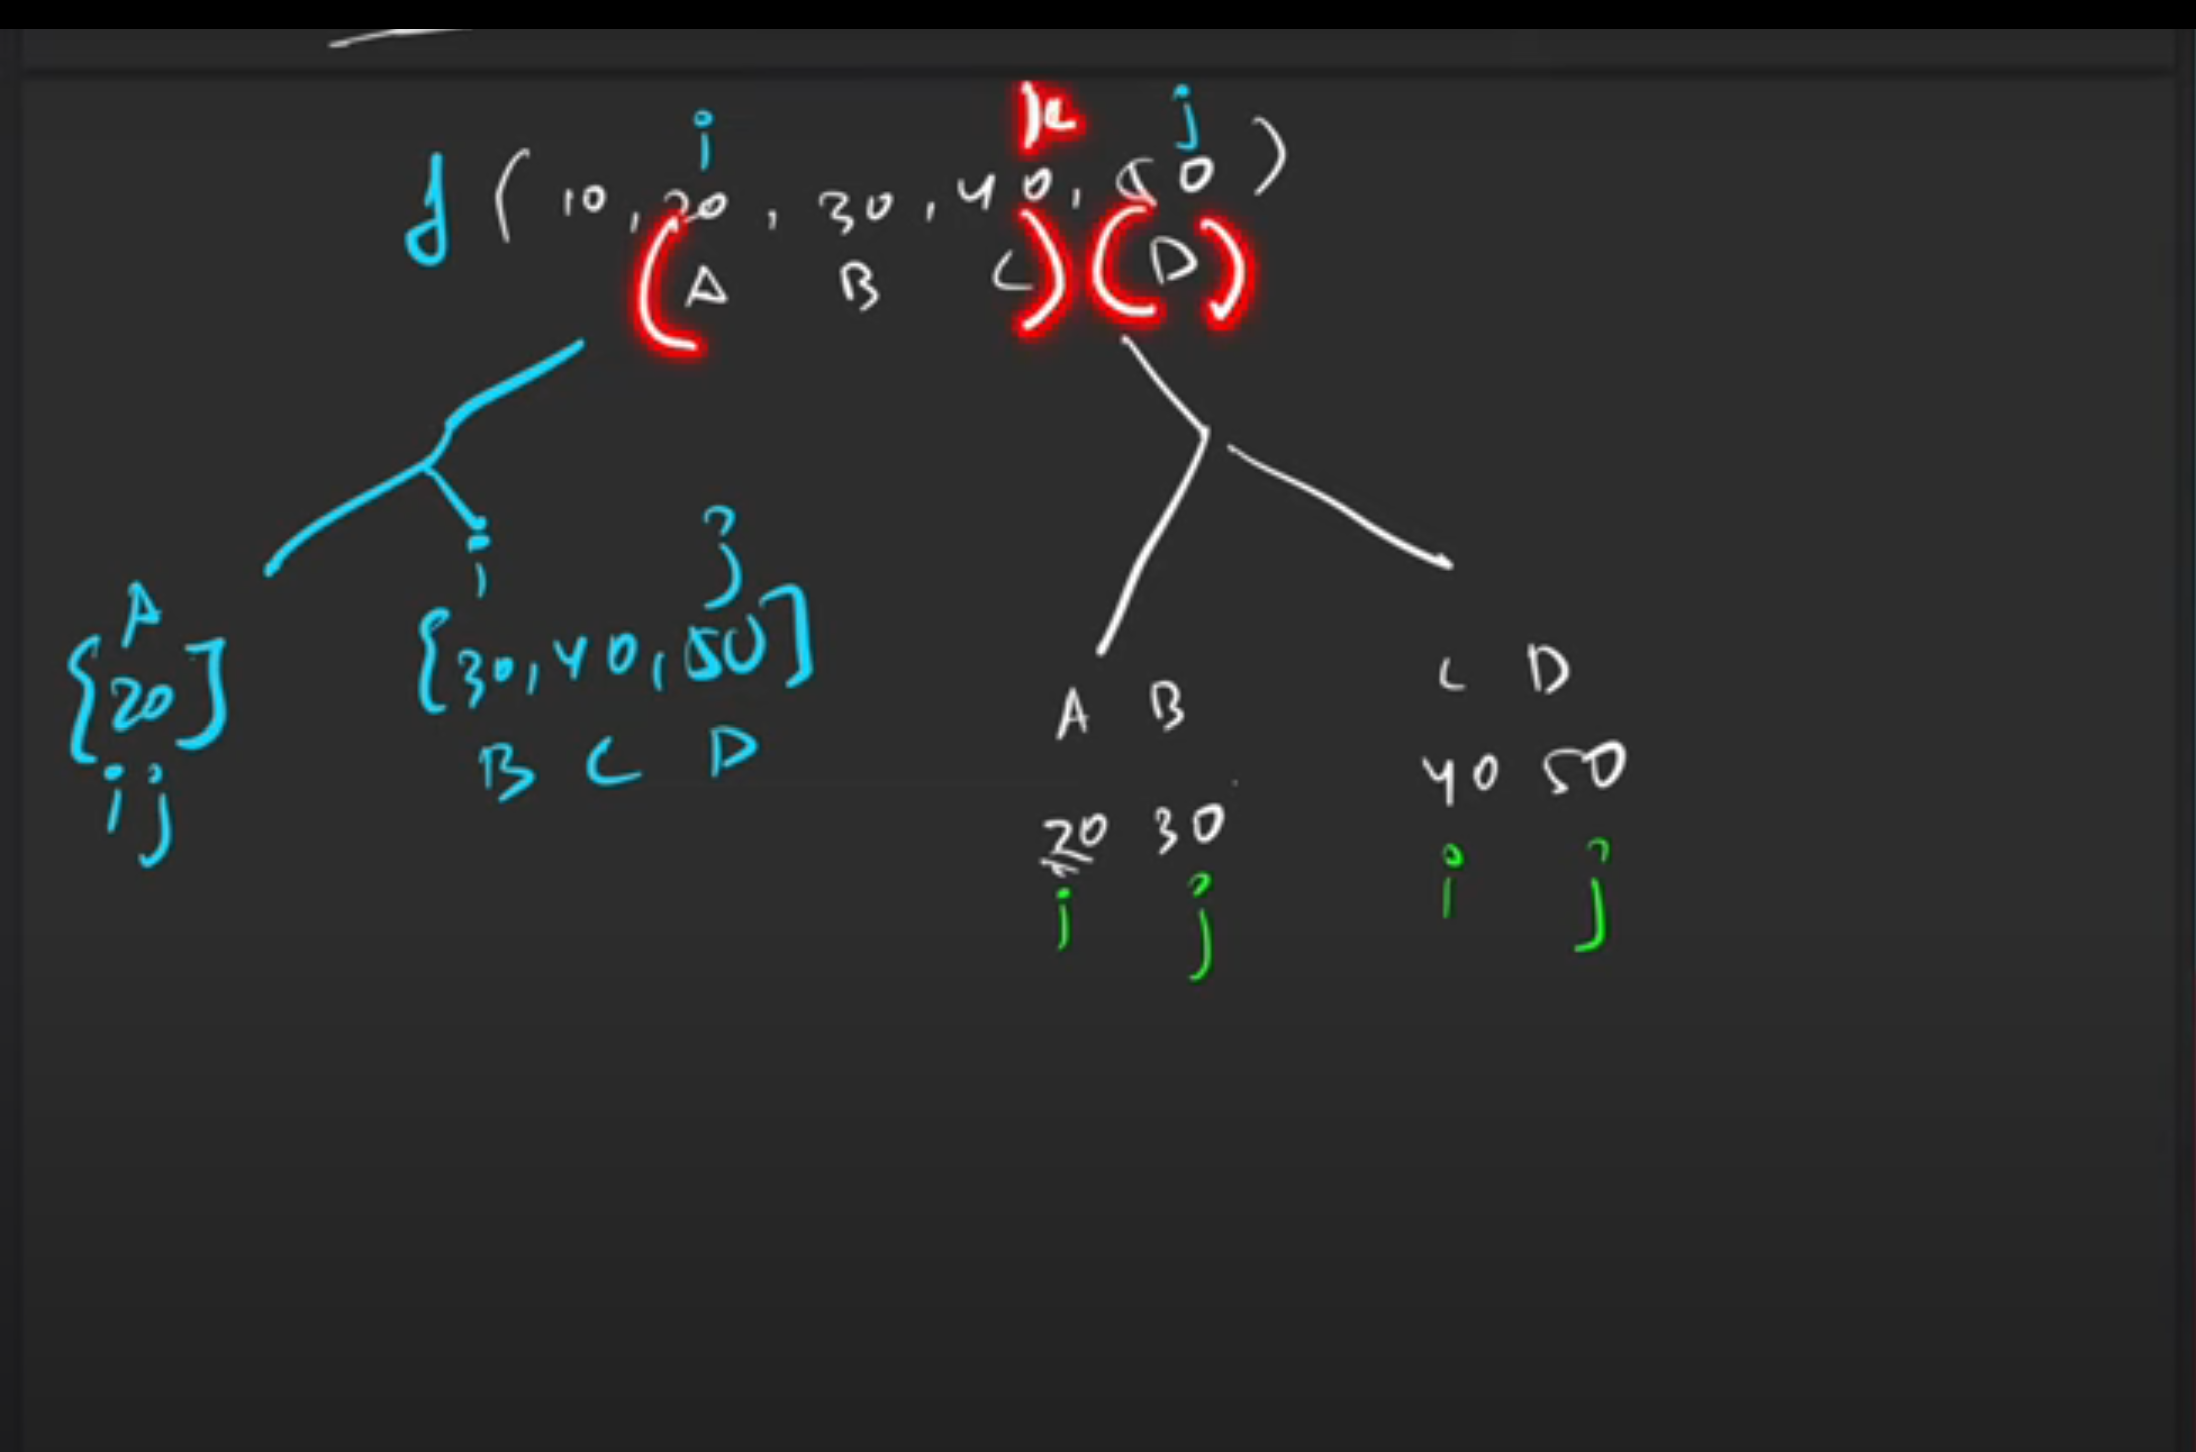 i k j
f(10, 20, 30, 40, 50)
(A B C)(D)
i j
A
{20]
i j
{30, 40, 50]
B C D
A B
20 30
i j
C D
40 50
i j